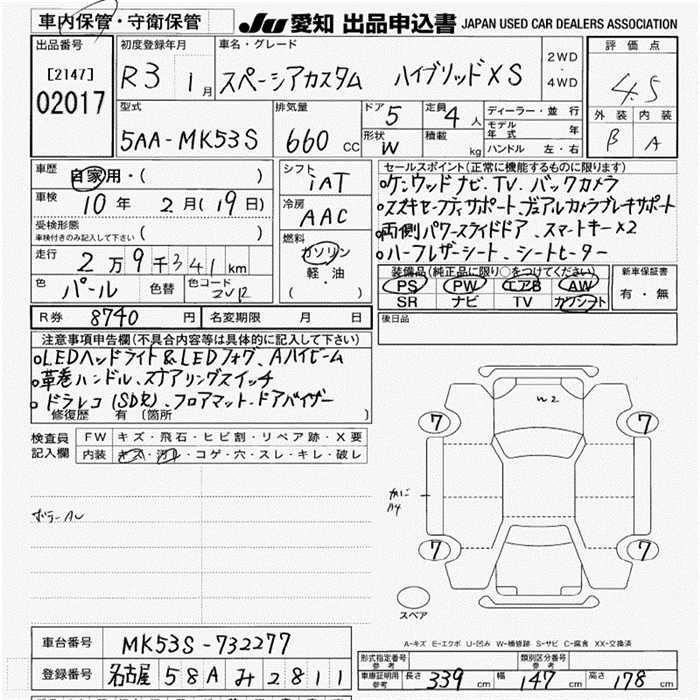 車内保管・守衛保管
JU 愛知 出品申込書 JAPAN USED CAR DEALERS ASSOCIATION
出品番号 [2147] 02017
初度登録年月 R3 1月
車名・グレード スペーシアカスタム ハイブリッドXS
2WD・4WD
評価点 4.5
外装 B 内装 A
型式 5AA-MK53S
排気量 660 CC
ドア 5 定員 4人
形状 W 積載 kg
ディーラー・並行
モデル年式 年
ハンドル 左・右
車歴 自家用・( )
車検 10年 2月(19日)
受検形態
車検付きのみ記入して下さい ( )
走行 2万9千341km
色 パール 色替 色コード ZVR
シフト iAT
冷房 AAC
燃料 ガソリン 軽・油 ( )
セールスポイント(正常に機能するものに限ります)
ケンウッドナビ、TV、バックカメラ
スズキセーフティサポート、デュアルカメラブレーキサポート
両側パワースライドドア、スマートキー×2
ハーフレザーシート、シートヒーター
装備品(純正品に限り○をつけてください)
PS PW エアB AW
SR ナビ TV カワシート
新車保証書 有・無
R券 8740円 名変期限 月 日
後日品
注意事項申告欄(不具合内容等は具体的に記入して下さい)
LEDヘッドライト&LEDフォグ、Aハイビーム
革巻ハンドル、ステアリングスイッチ
ドラレコ(SD欠)、フロアマット・ドアバイザー
修復歴 有 〔箇所 〕
検査員記入欄
FW キズ・飛石・ヒビ割・リペア跡・X要
内装 キズ・汚れ・コゲ・穴・スレ・キレ・破レ
W2
7 7
7 7
スペア
A-キズ E-エクボ U-凹み W-補修跡 S-サビ C-腐食 XX-交換済
車台番号 MK53S-732277
登録番号 名古屋 58A み 2811
形式指定番号 参考 類別区分番号 参考
車庫証明用参考 長さ 339cm 幅 147cm 高さ 178cm